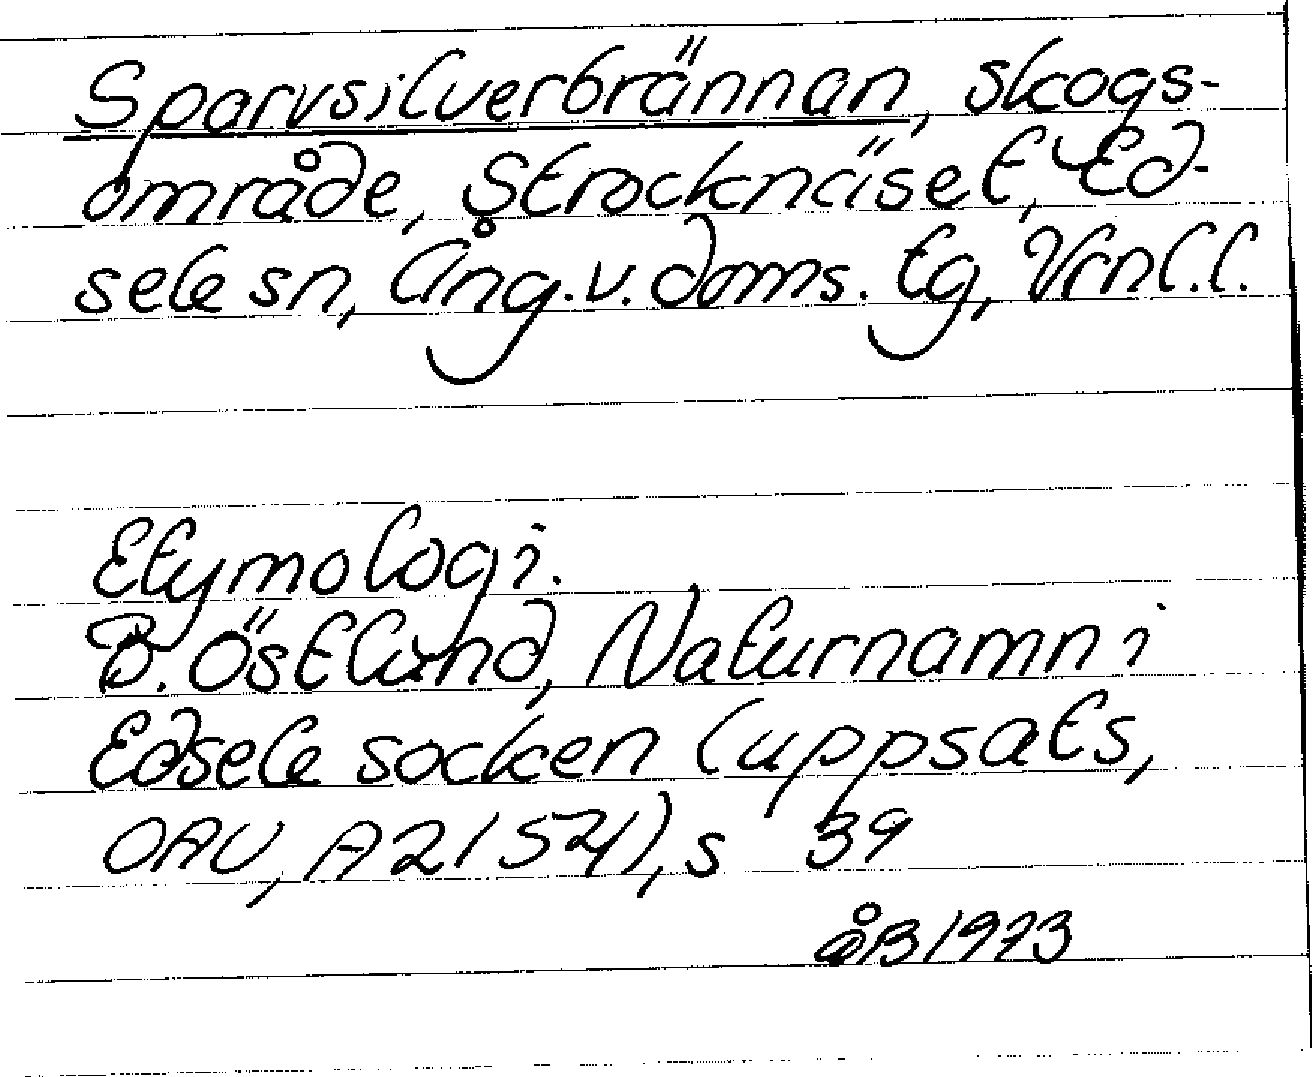 Sparvsilverbrännan, skogs-
område, Strocknäset, Ed-
sele sn, Ång.v.doms. tg, Vrnl.l.
Etymologi.
B. Östlund, Naturnamn i
Edsele socken (uppsats,
OAU, A 2154), s 39
åB 1973